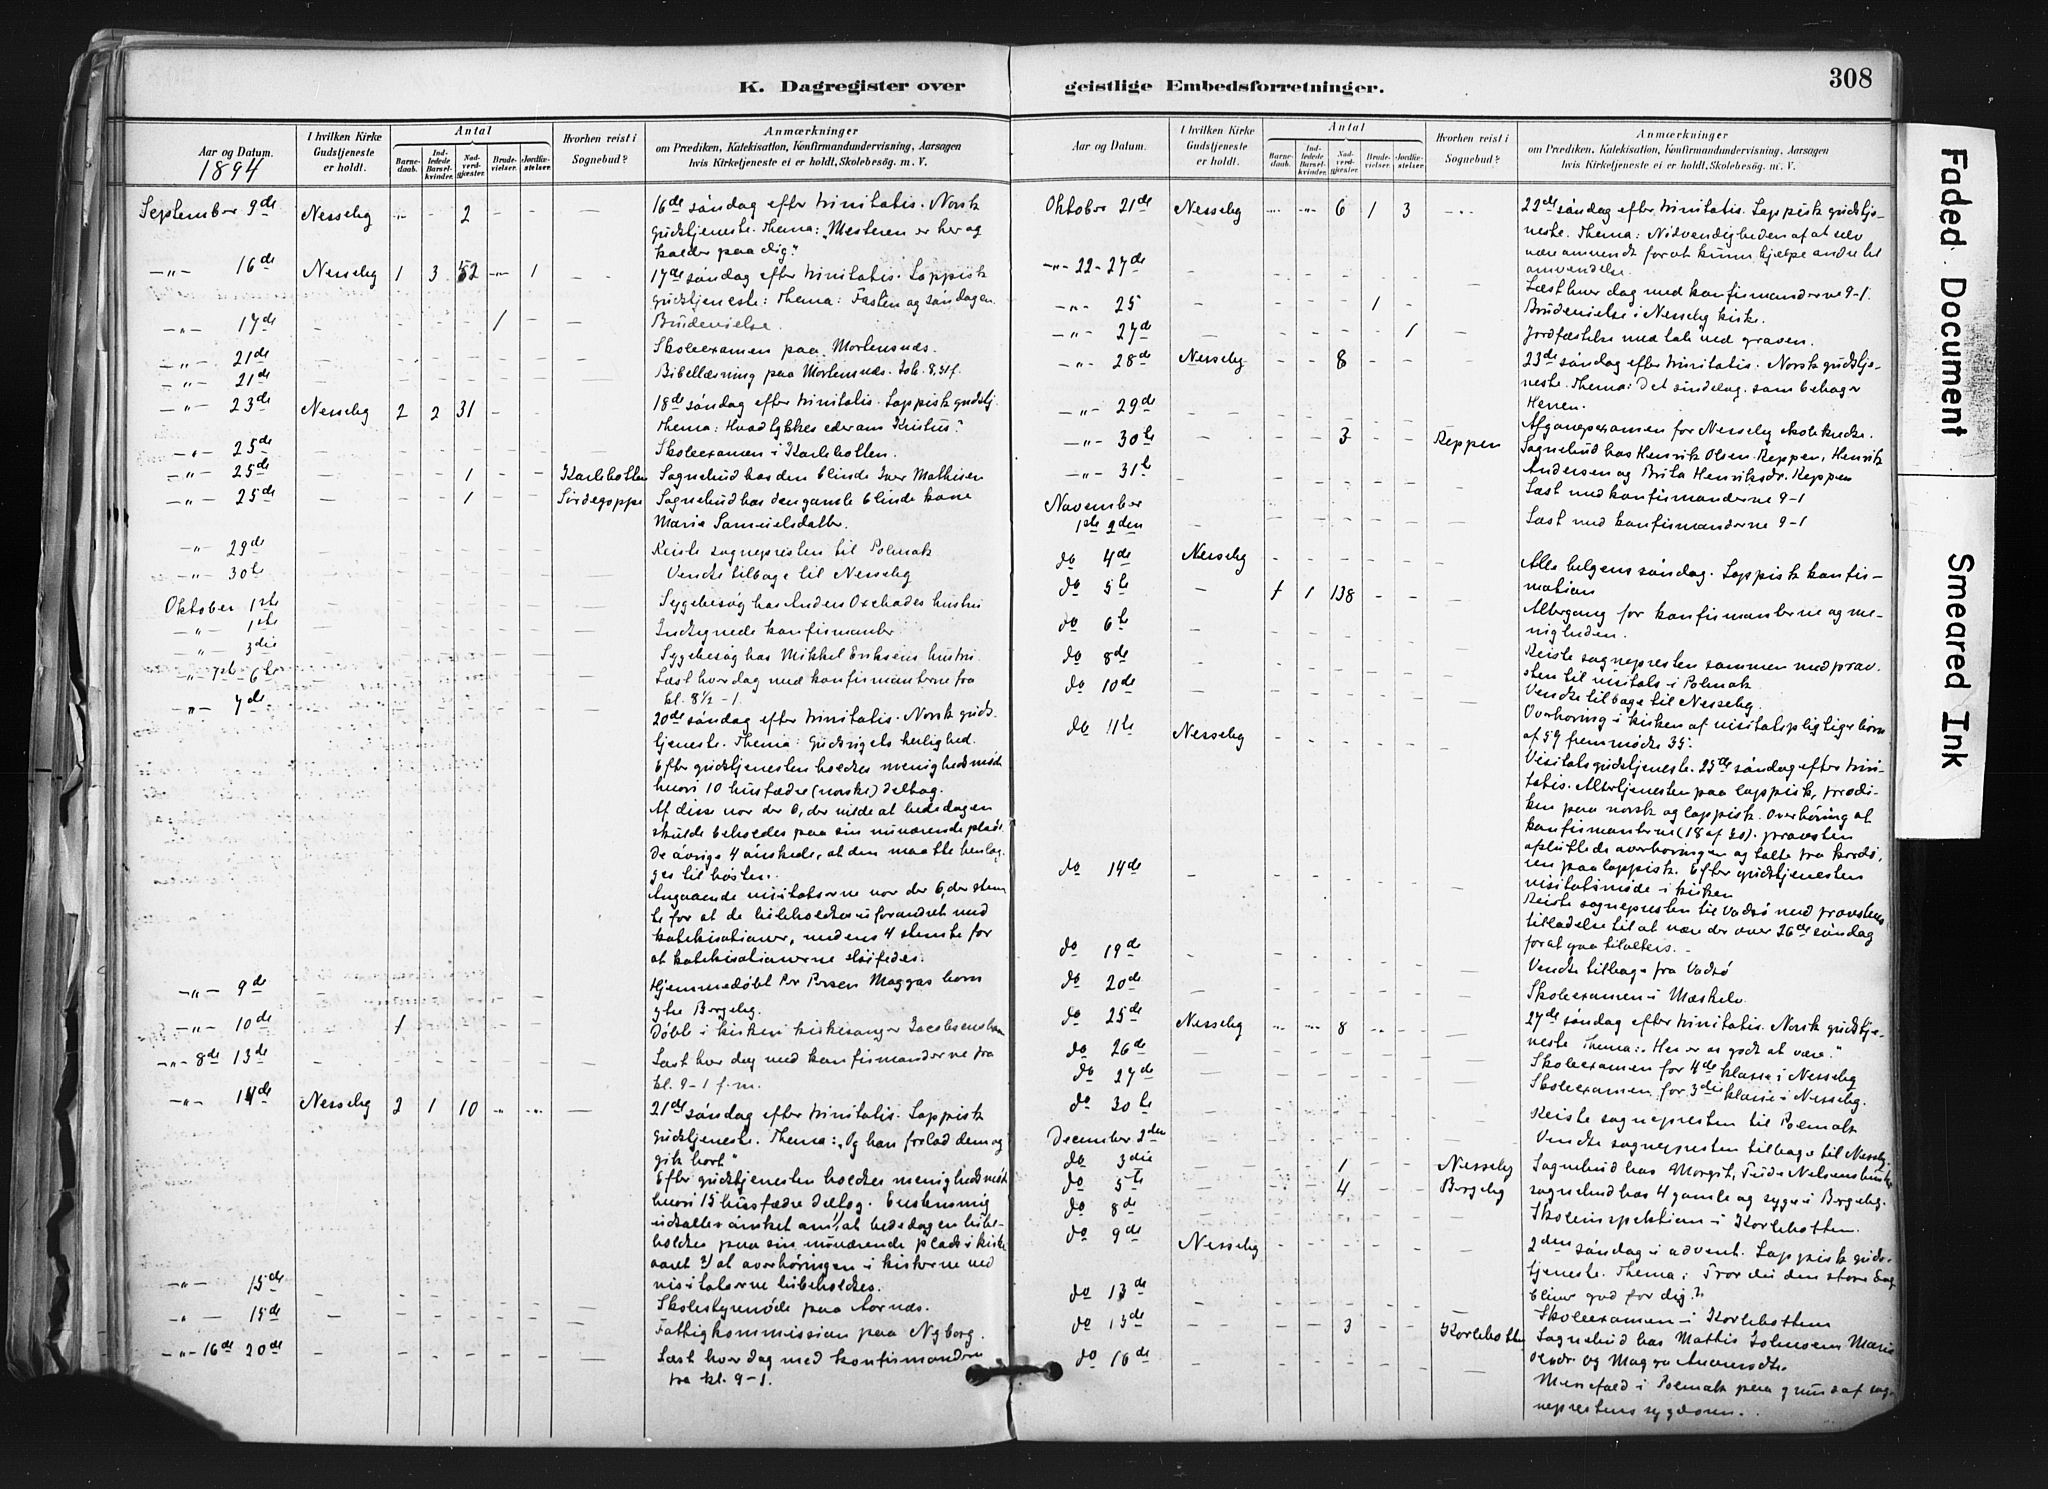 K. Dagregister over geistlige Embedsforretninger.
308
Aar og Datum.
1894
I hvilken Kirke Gudstjeneste er holdt.
Antal
Barnedaab.
Indledede Barselkvinder.
Nadverdgjæster.
Brudevielser.
Jordfæstelser.
Hvorhen reist i Sognebud?
Anmærkninger
om Prædiken, Katekisation, Konfirmandundervisning, Aarsagen
hvis Kirketjeneste ei er holdt, Skolebesøg. m. V.
September 9de Nesseby - - 2 - - - 16de søndag efter trinitatis. Norsk
gudstjeneste. Thema: "Mesteren er her og
kalder paa dig."
-"- 16de Nesseby 1 3 52 -"- 1 - 17de søndag efter trinitatis. Lappisk
gudstjeneste: Thema: Fasten og søndagen.
-"- 17de - - - - 1 - - Brudevielse.
-"- 21de Skoleexamen paa Mortensnæs.
-"- 21de Bibellæsning paa Mortensnæs. Joh. 8,31f.
-"- 23de Nesseby 2 2 31 - - - 18de søndag efter trinitatis. Lappisk gudstj.
Thema: Hvad tykkes eder om Kristus?
-"- 25de Skoleexamen i Karlebotten.
-"- 25de - - - 1 - - Karlebotten Sognebud hos den blinde Iver Mathisen
-"- 25de - - - 1 - - Sirdagoppe Sognebud hos den gamle blinde kone
Maria Samuelsdatter.
-"- 29de Reiste sognepresten til Polmak
-"- 30te Vendte tilbage til Nesseby
Oktober 1ste Sygebesøg hos Anders Oxehodes hustru
-"- 1ste Indtegnede konfirmanter
-"- 3die Sygebesøg hos Mikkel Eriksens hustru.
-"- 6te Læst hver dag med konfirmanterne fra
kl. 8½-1.
-"- 7de 20de søndag efter trinitatis. Norsk guds-
tjeneste. Thema: Gudsrigets herlighed.
Efter gudstjenesten holdtes menighedsmøde
hvori 10 husfædre (norske) deltog.
Af disse var der 6, der vilde at bededagen
skulde beholdes paa sin nuværende plads.
De øvrige 4 ønskede, at den maatte henlæg-
ges til høsten.
Angaaende visitatserne var der 6, der stem-
te for at de bibeholdtes uforandret med
katekisationer, medens 4 stemte for
at katekisationerne sløifedes.
-"- 9de Hjemmedøbt Per Persen Maggas barn
ytre Bergeby.
-"- 10de 1 Døbt i kirken kirkesanger Jacobsens barn
-"- 8de 13de Læst hver dag med konfirmanderne fra
kl. 9-1 f.m.
-"- 14de Nesseby 2 1 10 -"- -"- - 21de søndag efter trinitatis. Lappisk
gudstjeneste. Thema: "Og han forlod dem og
gik bort"
Efter gudstjenesten holdtes menighedsmøde
hvori 15 husfædre deltog. Enstemmig
udtaltes ønsket om 1/ at bededagen bibe-
holdtes paa sin nuværende plads i kirke
aaret 2/ at overhøringen i kirkerne ved
visitatserne bibeholdtes.
-"- 15de Skolestyremøde paa Aornæs.
-"- 15de Fattigkommission paa Nyborg.
-"- 16de 20de Læst hver dag med konfirmanderne
fra kl. 9-1.
Aar og Datum.
I hvilken Kirke Gudstjeneste er holdt.
Antal
Barnedaab.
Indledede Barselkvinder.
Nadverdgjæster.
Brudevielser.
Jordfæstelser.
Hvorhen reist i Sognebud?
Anmærkninger
om Prædiken, Katekisation, Konfirmandundervisning, Aarsagen
hvis Kirketjeneste ei er holdt, Skolebesøg. m. V.
Oktober 21de Nesseby -"- -"- 6 1 3 -"- 22de søndag efter trinitatis. Lappisk gudstje-
neste. Thema: Nødvendigheden af at selv
være omvendt for at kunne hjælpe andre til
omvendelse.
-"- 22-27de Læst hver dag med konfirmanderne 9-1.
-"- 25 1 Brudevielse i Nesseby kirke.
-"- 27de 1 Jordfæstelse med tale ved graven.
-"- 28de Nesseby - - 8 - - 23de søndag efter trinitatis. Norsk gudstje-
neste. Thema: Det sindelag som behager
Herren.
-"- 29de Afgangsexamen for Nesseby skolekreds.
-"- 30te 3 Reppen Sognebud hos Henrik Olsen Reppen, Henrik
Andersen og Brita Henriksdr. Reppen
-"- 31te Læst med konfirmanderne 9-1
November
1ste 2den Læst med konfirmanderne 9-1
do 4de Nesseby Alle helgens søndag. Lappisk konfir-
mation
do 5te 1 1 138 Altergang for konfirmanterne og me-
nigheden.
do 6te Reiste sognepresten sammen med prov-
sten til visitats i Polmak
do 8de Vendte tilbage til Nesseby.
do 10de Overhøring i kirken af visitatspligtige børn
af 59 fremmødte 35.
do 11te Nesseby Visitatsgudstjeneste. 25de søndag efter trini-
tatis. Altertjenesten paa lappisk, prædi-
ken paa norsk og lappisk. Overhøring af
konfirmanterne (18 af 20). provsten
afsluttede overhøringen og talte fra kordø-
ren paa lappisk. Efter gudstjenesten
visitatsmøde i kirken
do 14de Reiste sognepresten til Vadsø med provstens
tilladelse til at være der over 26de søndag
for at gaa til alters.
do 19de Vendte tilbage fra Vadsø
do 20de Skoleexamen i Mæskelv
do 25de Nesseby -"- -"- 8 -"- - 27de søndag efter trinitatis. Norsk gudstje-
neste Thema: "Her er os godt at være."
do 26de Skoleexamen for 4de klasse i Nesseby
do 27de Skoleexamen for 3die klasse i Nesseby.
do 30te Reiste sognepresten til Polmak
December 2den Vendte sognepresten tilbage til Nesseby.
do 3die 1 Nesseby Sognebud hos Margit, Nielsens hustru
do 5te 4 Bergeby sognebud hos 4 gamle og syge i Bergeby.
do 8de Skoleinspektion i Karlebotten.
do 9de Nesseby 2den søndag i advent. Lappisk guds-
tjeneste. Thema: Tror du den store dag
bliver god for dig?
do 13de Skoleexamen i Karlebotten
do 13de 3 Karlebotten Sognebud hos Mathis Johnsen Maria
og Magga
do 16de Messefald i Polmak paa grund af sog-
neprestens sygdom.
Faded Document
Smeared Ink